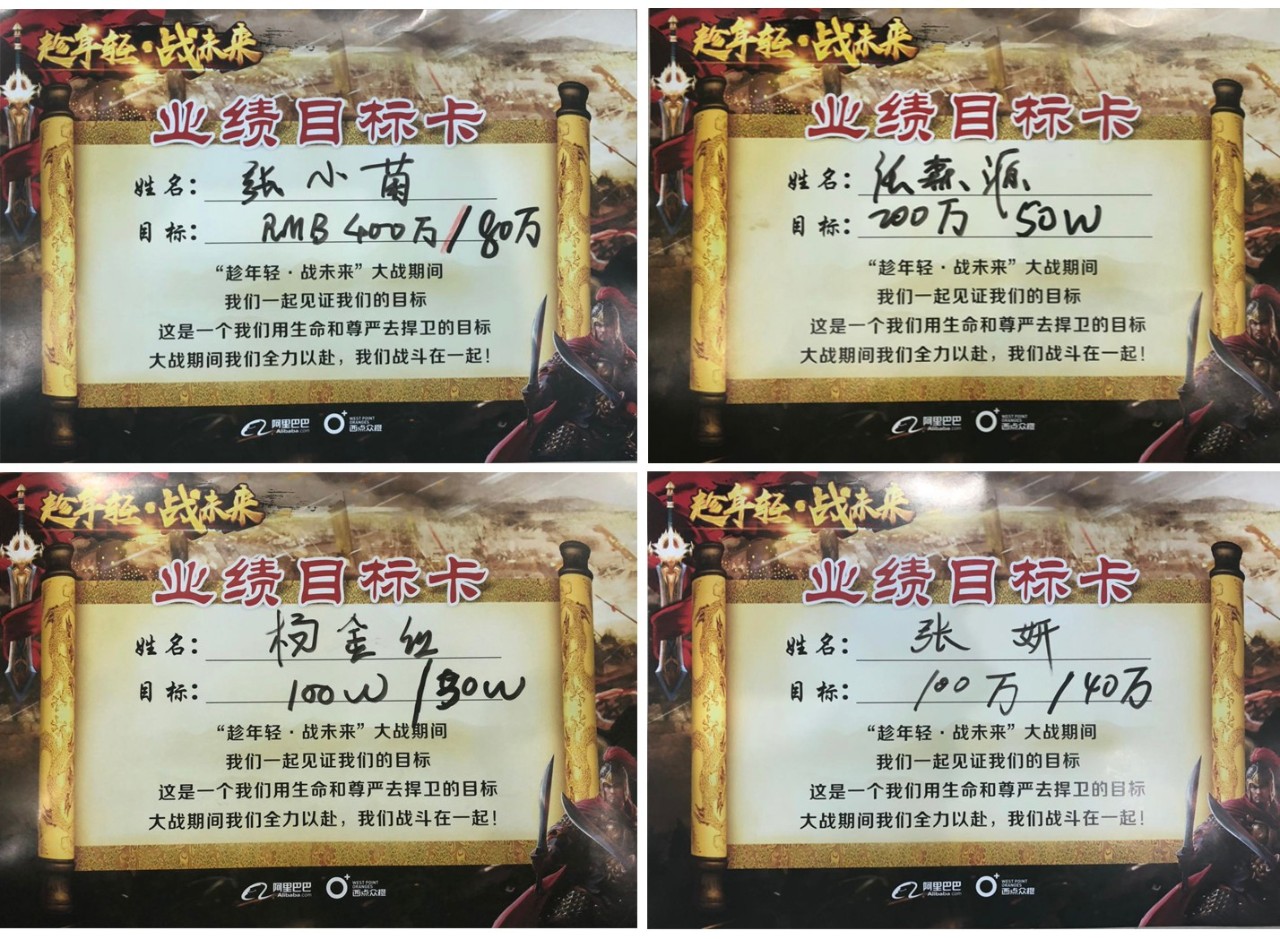 趁年轻·战未来
业绩目标卡
姓名：张小菊
目标：RMB 400万/80万
“趁年轻·战未来”大战期间
我们一起见证我们的目标
这是一个我们用生命和尊严去捍卫的目标
大战期间我们全力以赴，我们战斗在一起！
阿里巴巴 Alibaba.com
WEST POINT ORANGES
西点众橙
趁年轻·战未来
业绩目标卡
姓名：张森源
目标：200万 50W
“趁年轻·战未来”大战期间
我们一起见证我们的目标
这是一个我们用生命和尊严去捍卫的目标
大战期间我们全力以赴，我们战斗在一起！
阿里巴巴 Alibaba.com
WEST POINT ORANGES
西点众橙
趁年轻·战未来
业绩目标卡
姓名：杨金
目标：100W/30W
“趁年轻·战未来”大战期间
我们一起见证我们的目标
这是一个我们用生命和尊严去捍卫的目标
大战期间我们全力以赴，我们战斗在一起！
阿里巴巴 Alibaba.com
WEST POINT ORANGES
西点众橙
趁年轻·战未来
业绩目标卡
姓名：张妍
目标：100万/40万
“趁年轻·战未来”大战期间
我们一起见证我们的目标
这是一个我们用生命和尊严去捍卫的目标
大战期间我们全力以赴，我们战斗在一起！
阿里巴巴 Alibaba.com
WEST POINT ORANGES
西点众橙